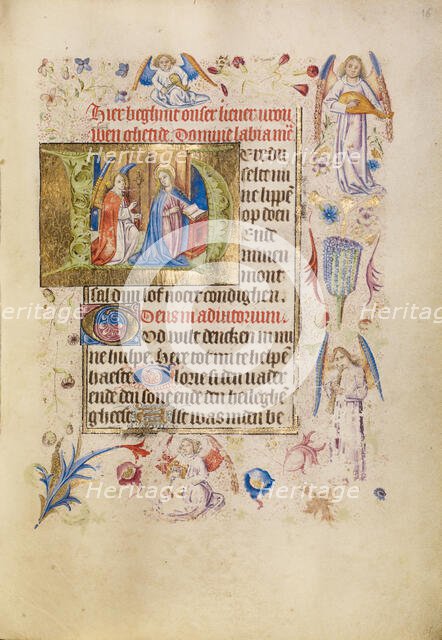 16
Hier beghint onser lieuer vrou
wen ghetide. Domine labia mea
Ere du
selte mi
ne lippē
op doen
Ende
minen
mont
sal dijn lof vort condighen.
Deus in adiutorium.
God wilt dencken in mi
ne hulpe. Here tot mi te helpē
haeste. Glorie si den vader
ende den sone ende den heileghē
gheest. Alst was inden be
Heritage
Heritage
Heritage
Heritage
Heritage
Heritage
Heritage
Heritage
Heritage